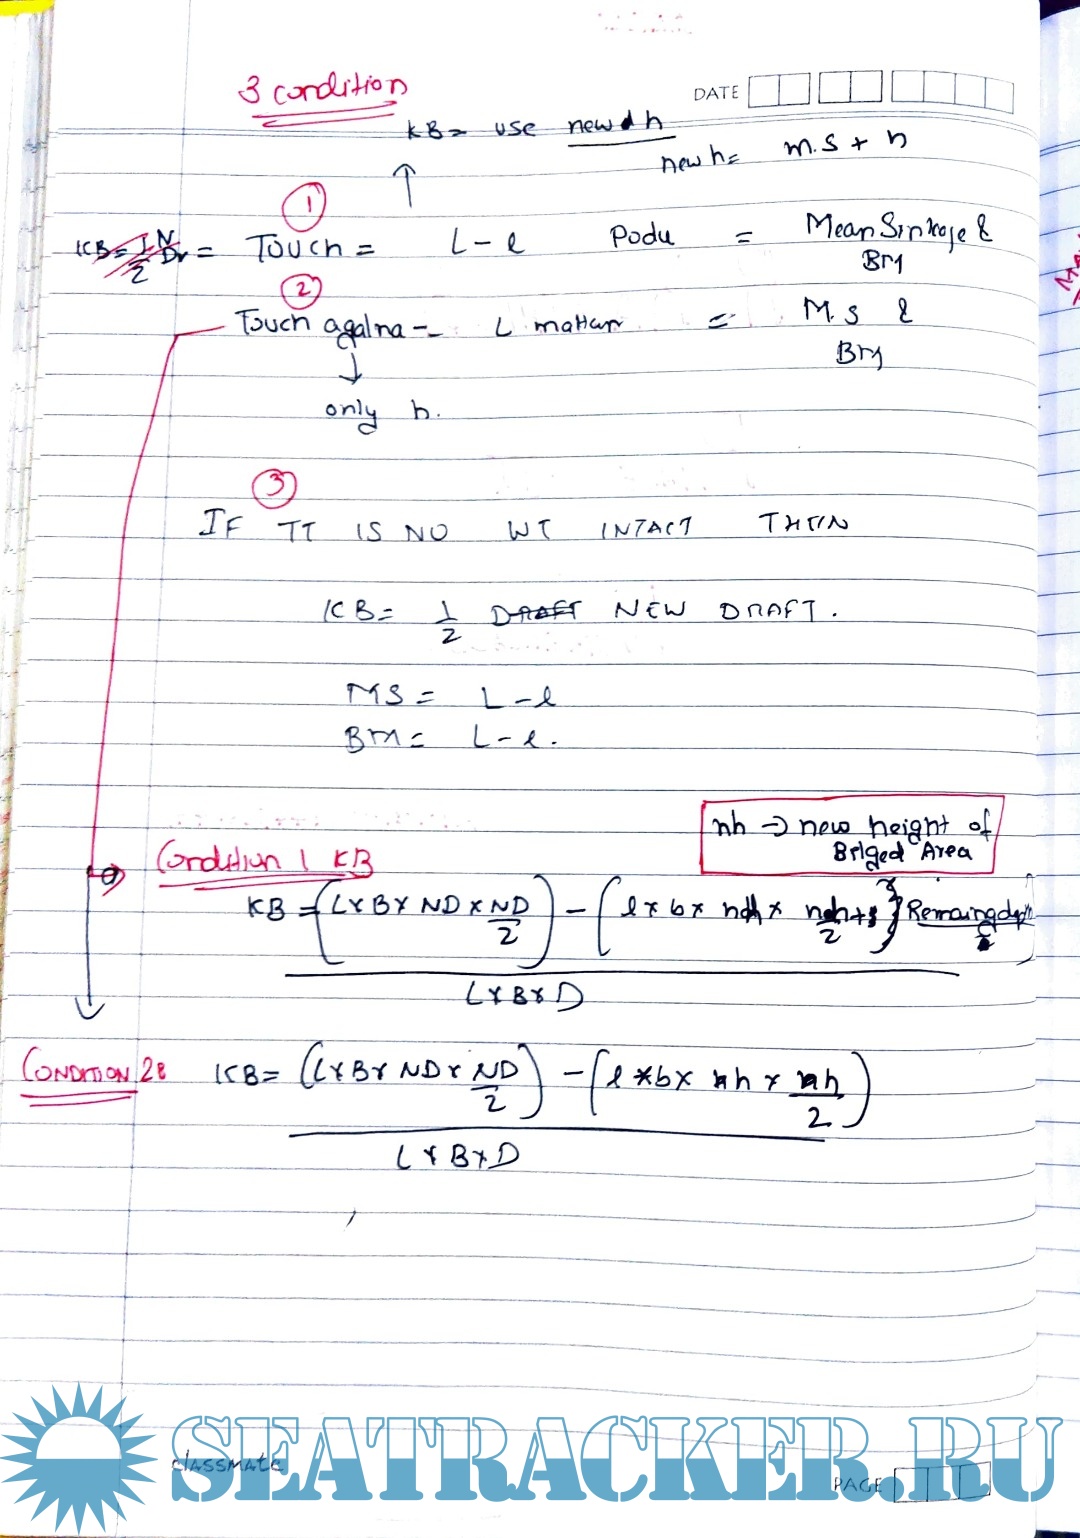 3 condition
DATE
KB = use new d h
new h = m.s + h
1
KB = 1/2 N Dr = Touch = L - l Podu = Mean Sinkage &
BM
2
Touch agalna - L mattum = M.S &
BM
only h.
3
IF IT IS NO WT INTACT THEN
KB = 1/2 DRAFT NEW DRAFT.
MS = L - l
BM = L - l.
nh → new height of
Briged Area
Condition 1 KB
KB = (L x B x ND x ND/2) - (l x b x nh x nh/2 + } Remaing depth
L x B x D
CONDITION 2 : KB = (L x B x ND x ND/2) - (l x b x nh x nh/2)
L x B x D
SEATRACKER.RU
classmate
PAGE